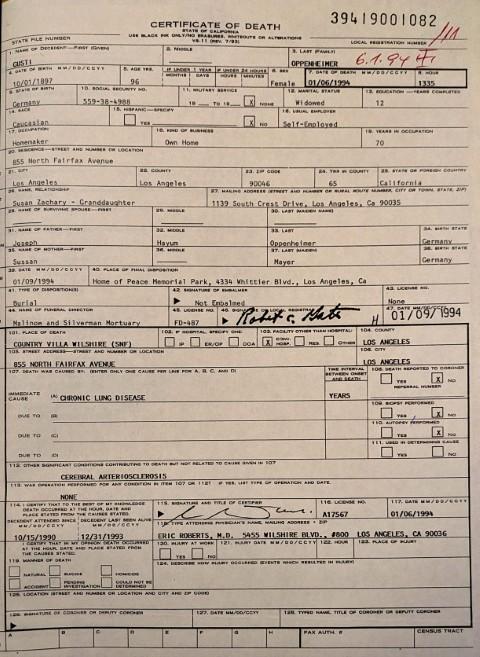 CERTIFICATE OF DEATH
STATE OF CALIFORNIA
USE BLACK INK ONLY/NO ERASURES, WHITEOUTS OR ALTERATIONS
VS-11 (REV. 7/93)
39419001082
STATE FILE NUMBER
LOCAL REGISTRATION NUMBER
1. NAME OF DECEDENT—FIRST (GIVEN)
2. MIDDLE
3. LAST (FAMILY)
GUSTI
OPPENHEIMER
6.1.94
4. DATE OF BIRTH MM/DD/CCYY
5. AGE YRS.
IF UNDER 1 YEAR
IF UNDER 24 HOURS
6. SEX
7. DATE OF DEATH MM/DD/CCYY
8. HOUR
MONTHS DAYS HOURS MINUTES
10/01/1897
96
Female
01/06/1994
1335
9. STATE OF BIRTH
10. SOCIAL SECURITY NO.
11. MILITARY SERVICE
12. MARITAL STATUS
13. EDUCATION—YEARS COMPLETED
Germany
559-38-4988
19 TO 19 X NONE
Widowed
12
14. RACE
15. HISPANIC—SPECIFY
16. USUAL EMPLOYER
Caucasian
YES X NO
Self-Employed
17. OCCUPATION
18. KIND OF BUSINESS
19. YEARS IN OCCUPATION
Homemaker
Own Home
70
20. RESIDENCE—STREET AND NUMBER OR LOCATION
855 North Fairfax Avenue
21. CITY
22. COUNTY
23. ZIP CODE
24. YRS IN COUNTY
25. STATE OR FOREIGN COUNTRY
Los Angeles
Los Angeles
90046
65
California
26. NAME, RELATIONSHIP
27. MAILING ADDRESS (STREET AND NUMBER OR RURAL ROUTE NUMBER, CITY OR TOWN, STATE, ZIP)
Susan Zachary - Granddaughter
1139 South Crest Drive, Los Angeles, Ca 90035
28. NAME OF SURVIVING SPOUSE—FIRST
29. MIDDLE
30. LAST (MAIDEN NAME)
31. NAME OF FATHER—FIRST
32. MIDDLE
33. LAST
34. BIRTH STATE
Joseph
Hayum
Oppenheimer
Germany
35. NAME OF MOTHER—FIRST
36. MIDDLE
37. LAST (MAIDEN)
38. BIRTH STATE
Sussan
Mayer
Germany
39. DATE MM/DD/CCYY
40. PLACE OF FINAL DISPOSITION
01/09/1994
Home of Peace Memorial Park, 4334 Whittier Blvd., Los Angeles, Ca
41. TYPE OF DISPOSITION(S)
42. SIGNATURE OF EMBALMER
43. LICENSE NO.
Burial
Not Embalmed
None
44. NAME OF FUNERAL DIRECTOR
45. LICENSE NO.
46. SIGNATURE OF LOCAL REGISTRAR
47. DATE MM/DD/CCYY
Malinow and Silverman Mortuary
FD-487
H
01/09/1994
101. PLACE OF DEATH
102. IF HOSPITAL, SPECIFY ONE:
103. FACILITY OTHER THAN HOSPITAL:
104. COUNTY
COUNTRY VILLA WILSHIRE (SNF)
IP ER/OP DOA X CONV. HOSP. RES. OTHER
LOS ANGELES
105. STREET ADDRESS—STREET AND NUMBER OR LOCATION
106. CITY
855 NORTH FAIRFAX AVENUE
LOS ANGELES
107. DEATH WAS CAUSED BY: (ENTER ONLY ONE CAUSE PER LINE FOR A, B, C, AND D)
TIME INTERVAL BETWEEN ONSET AND DEATH
108. DEATH REPORTED TO CORONER
YES X NO
REFERRAL NUMBER
IMMEDIATE CAUSE
(A) CHRONIC LUNG DISEASE
YEARS
109. BIOPSY PERFORMED
YES X NO
DUE TO (B)
110. AUTOPSY PERFORMED
YES X NO
DUE TO (C)
111. USED IN DETERMINING CAUSE
DUE TO (D)
YES NO
112. OTHER SIGNIFICANT CONDITIONS CONTRIBUTING TO DEATH BUT NOT RELATED TO CAUSE GIVEN IN 107
CEREBRAL ARTERIOSCLEROSIS
113. WAS OPERATION PERFORMED FOR ANY CONDITION IN ITEM 107 OR 112? IF YES, LIST TYPE OF OPERATION AND DATE.
NONE
114. I CERTIFY THAT TO THE BEST OF MY KNOWLEDGE DEATH OCCURRED AT THE HOUR, DATE AND PLACE STATED FROM THE CAUSES STATED.
115. SIGNATURE AND TITLE OF CERTIFIER
116. LICENSE NO.
117. DATE MM/DD/CCYY
A17567
01/06/1994
DECEDENT ATTENDED SINCE
DECEDENT LAST SEEN ALIVE
MM/DD/CCYY
MM/DD/CCYY
118. TYPE ATTENDING PHYSICIAN'S NAME, MAILING ADDRESS + ZIP
10/15/1990
12/31/1993
ERIC ROBERTS, M.D. 5455 WILSHIRE BLVD., #800 LOS ANGELES, CA 90036
I CERTIFY THAT IN MY OPINION DEATH OCCURRED AT THE HOUR, DATE AND PLACE STATED FROM THE CAUSES STATED.
120. INJURY AT WORK
121. INJURY DATE MM/DD/CCYY
122. HOUR
123. PLACE OF INJURY
YES NO
119. MANNER OF DEATH
124. DESCRIBE HOW INJURY OCCURRED (EVENTS WHICH RESULTED IN INJURY)
NATURAL SUICIDE HOMICIDE
ACCIDENT PENDING INVESTIGATION COULD NOT BE DETERMINED
125. LOCATION (STREET AND NUMBER OR LOCATION AND CITY AND ZIP CODE)
126. SIGNATURE OF CORONER OR DEPUTY CORONER
127. DATE MM/DD/CCYY
128. TYPED NAME, TITLE OF CORONER OR DEPUTY CORONER
A B C D E F G H
FAX AUTH. #
CENSUS TRACT